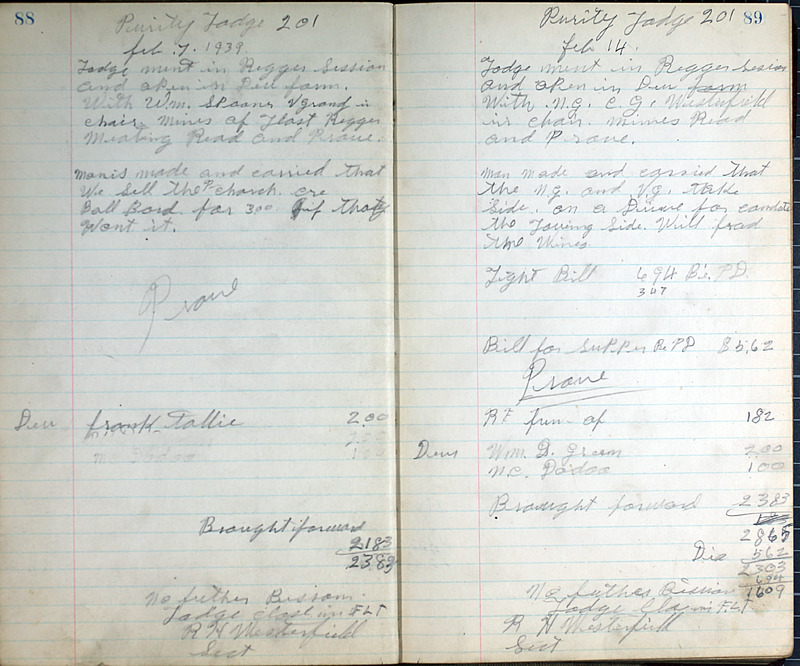 88
Purity Lodge 201
feb. 7. 1939.
Lodge ment in Regger Session
and open in Deu form.
With Wm. Spooner V grand in
chair. Mines of Last Regger
Meating Read and Prove.
made and carried that
We Sell the church
Ball Bord for 300 if they
Want it.
Prove
Deu frank Tallie 2.00
Brought forward
2183
2383
No futher Bissom.
Lodge Close in F L T
R H Westerfield
Sect
Purity Lodge 201 89
feb 14.
Lodge ment in Regger Session
and open in Deu form
With. N.G. C. G. Westerfield
in chair. mines Read
and Prove.
Man made and carried that
the N.G. and V.G. take
Side. on a Drive for
the Losing Side. Will
the
Light Bill 694 Be. PD.
347
Bill for Supper Be PD 8 5.62
Prove
of 182
Deus Wm. D. Green 2.00
N.C. Dodoo 1 00
Brought forward 2383
2865
Dis 562
2303
694
1609
No futher Bission
Lodge Close in F. L T
R H Westerfield
Sect